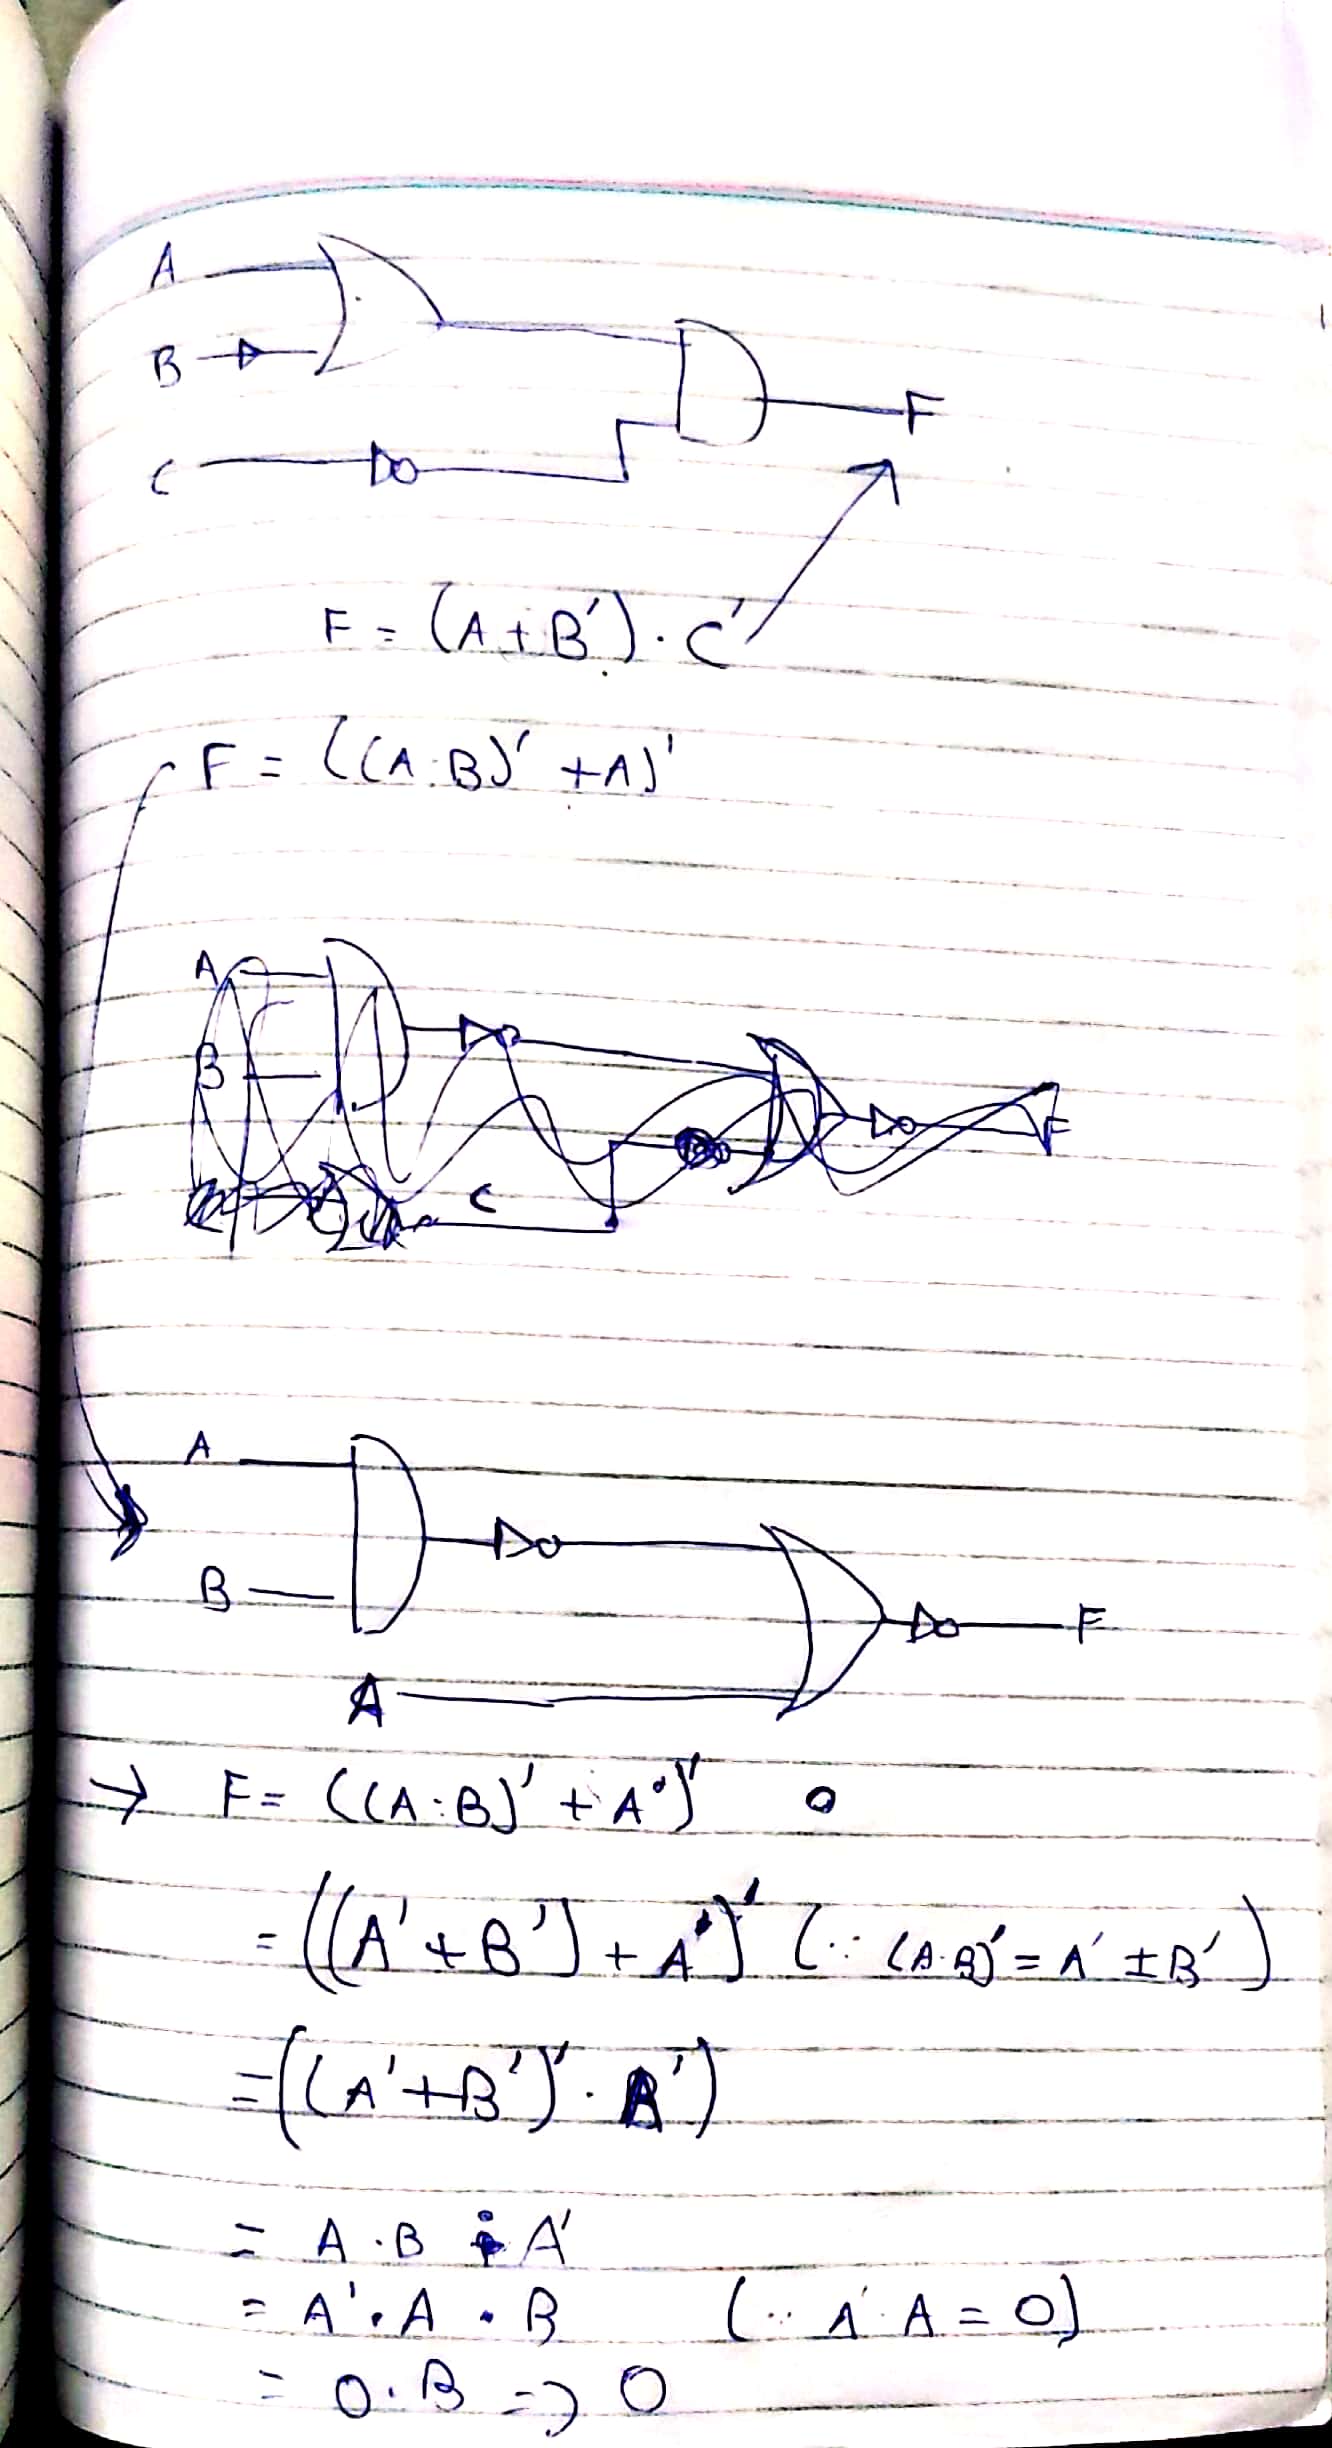 A
B
C
F
F = (A+B').C'
F = ((A.B)' + A)'
A
B
C
F
A
B
A
F
→ F = ((A.B)' + A)'
= ((A'+B') + A)' (∵ (A.B)' = A'+B')
= ((A'+B')'.A')
= A.B . A'
= A'.A.B (∵ A'.A = 0)
= 0.B => 0